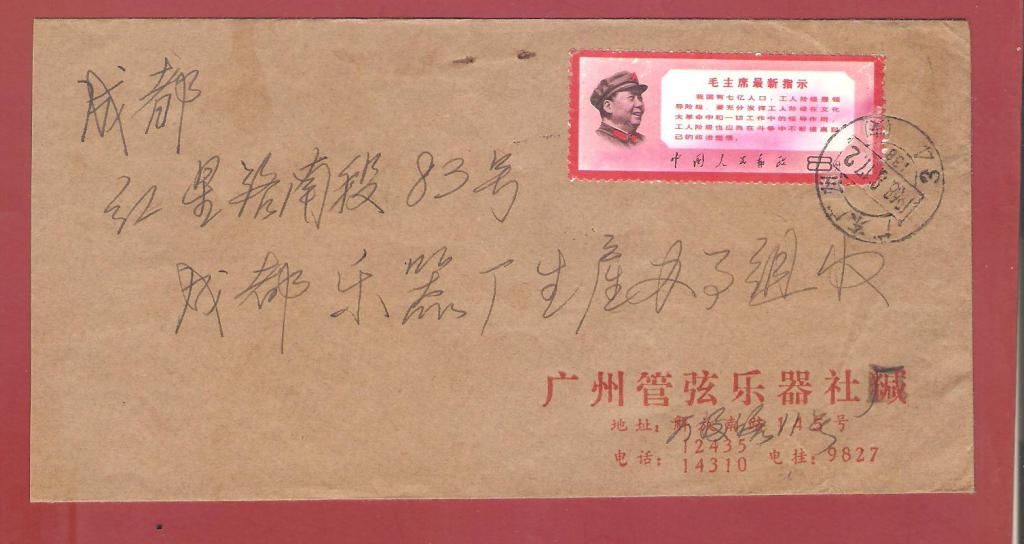 成都
红星路南段83号
成都乐器厂生产办事组收
毛主席最新指示
我国有七亿人口，工人阶级是领
导阶级。要充分发挥工人阶级在文化
大革命中和一切工作中的领导作用。
工人阶级也应当在斗争中不断提高自
己的政治觉悟。
中国人民邮政
8
广州
广州管弦乐器社缄
地址：解放南路145号
电话：12435
14310 电挂：9827